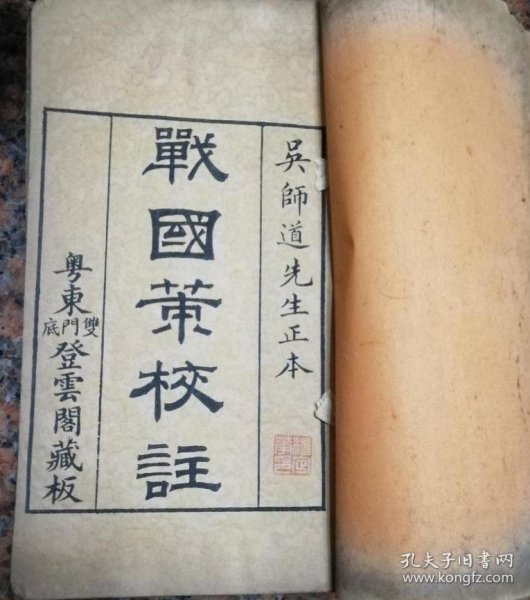 吳師道先生正本
戰國策校註
粵東雙門底登雲閣藏板
孔夫子旧书网
www.kongfz.com